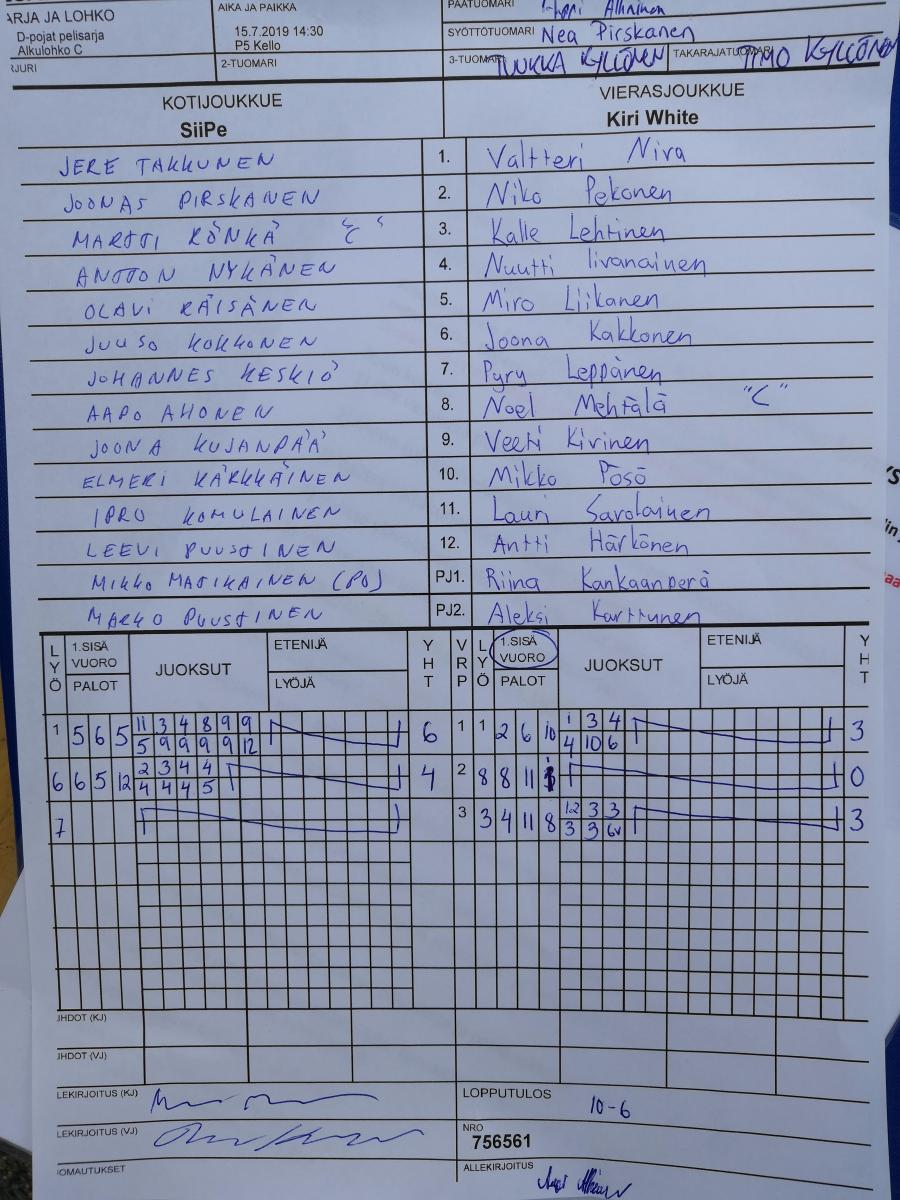 ARJA JA LOHKO
D-pojat pelisarja
Alkulohko C
AIKA JA PAIKKA
15.7.2019 14:30
P5 Kello
2-TUOMARI
PÄÄTUOMARI
SYÖTTÖTUOMARI Nea Pirskanen
3-TUOMARI TUUKKA KYLLÖNEN TAKARAJATUOMARI TIMO KYLLÖNEN
KOTIJOUKKUE VIERASJOUKKUE
SiiPe Kiri White
JERE TAKKUNEN 1. Valtteri Niva
JOONAS PIRSKANEN 2. Niko Pekonen
MARTTI RÖNKÄ "C" 3. Kalle Lehtinen
ANTTON NYKÄNEN 4. Nuutti Iivanainen
OLAVI RÄISÄNEN 5. Miro Liikanen
JUUSO KOKKONEN 6. Joona Kakkonen
JOHANNES KESKIÖ 7. Pyry Leppänen
AAPO AHONEN 8. Noel Mehtälä "C"
JOONA KUJANPÄÄ 9. Veeti Kivinen
ELMERI KÄRKKÄINEN 10. Mikko Pösö
IPRO KOMULAINEN 11. Lauri Savolainen
LEEVI PUUSTINEN 12. Antti Härkönen
MIKKO MATIKAINEN (PJ) PJ1. Riina Kankaanperä
MARKO PUUSTINEN PJ2. Aleksi Karttunen
LYÖ 1.SISÄ VUORO PALOT JUOKSUT ETENIJÄ LYÖJÄ YHT VRP LYÖ 1.SISÄ VUORO PALOT JUOKSUT ETENIJÄ LYÖJÄ YHT
1 5 6 5 11 3 4 8 9 9 6 1 1 2 6 10 1 3 4 3
5 9 9 9 9 12 4 10 6
6 6 5 12 2 3 4 4 4 2 8 8 11 0
4 4 4 5
7 3 3 4 11 8 12 3 3 3
3 3 6v
JHDOT (KJ)
JHDOT (VJ)
LEKIRJOITUS (KJ) LOPPUTULOS 10-6
LEKIRJOITUS (VJ) NRO
756561
OMAUTUKSET ALLEKIRJOITUS